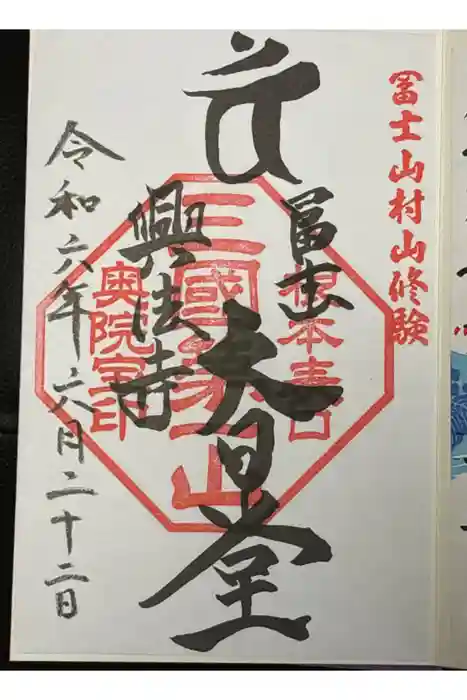 冨士山村山修験
冨士
大日堂
興法寺
令和六年六月二十二日
三國第一山
根本宮
奥院室印